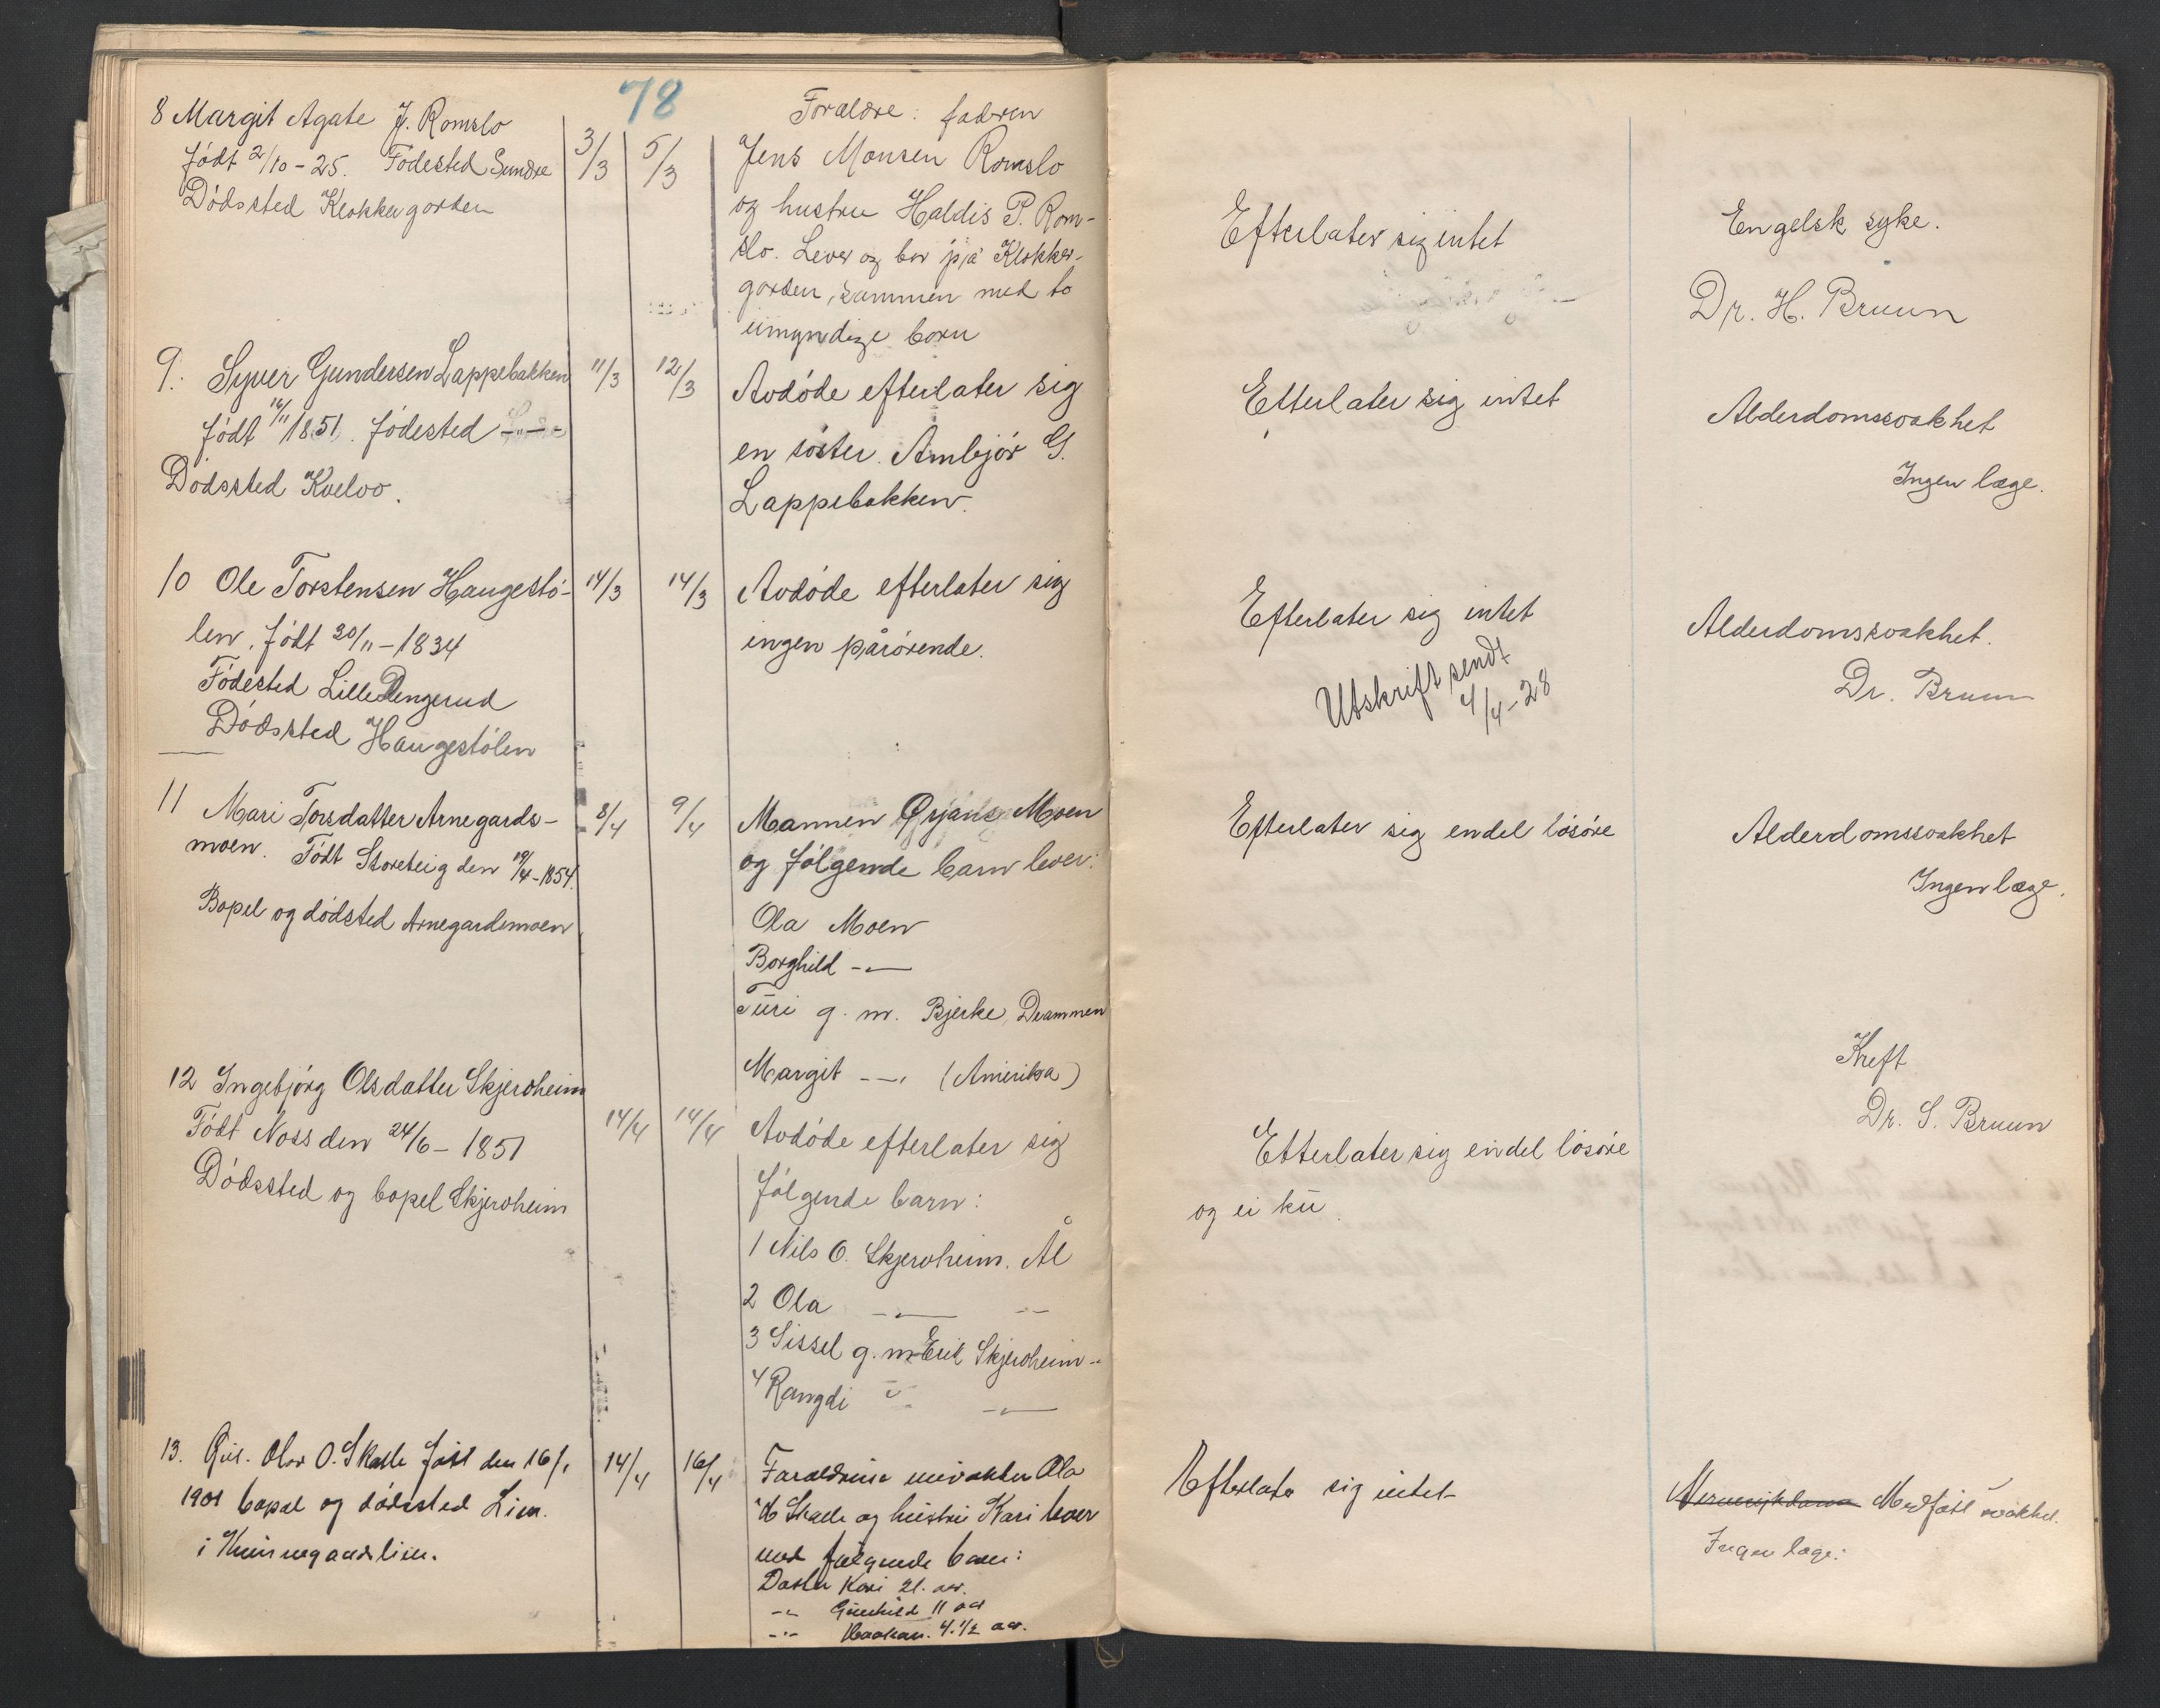 78
8 Margit Agate J. Romslo
født 2/10 - 25. Fødested Sundre
Dødssted Klokkergorden
3/3
5/3
Forældre: faderen
Jens Monsen Romslo
og hustru Haldis P. Rom-
slo. Lever og bor på Klokker-
gorden, sammen med to
umyndige born
Efterlater sig intet
Engelsk syke.
Dr. H. Bruun
9. Syver Gundersen Lappebakken
født 16/11 1851. fødested
Dødssted Kvelvo.
11/3
12/3
Avdøde efterlater sig
en søster. Ambjør G.
Lappebakken.
Etterlater sig intet
Alderdomssvakhet
Ingen læge.
10 Ole Torstensen Haugestø-
len, født 20/11 - 1834
Fødested Lille Dengerud
Dødssted Haugestølen
14/3
14/3
Avdøde efterlater sig
ingen pårørende.
Efterlater sig intet
Utskrift sendt
4/4 - 28
Alderdomssvakhet.
Dr. Bruun
11 Mari Torsdatter Arnegards-
moen. Født Storeteig den 19/4 - 1854.
Bopel og dødsted Arnegardsmoen
8/4
9/4
Mannen Ørjans Moen
og følgende barn lever:
Ola Moen
Borghild -"-
Turi g. m. Bjerke, Drammen
Margit -"- (Amerika)
Efterlater sig endel løsøre
Alderdomssvakhet
Ingen læge.
12 Ingebjørg Olsdatter Skjervheim
Født Noss den 24/6 - 1851
Dødssted og bopel Skjervheim
14/4
14/4
Avdøde efterlater sig
følgende barn:
1 Nils O. Skjervheim. Ål
2 Ola -"- -"-
3 Sissel g. m. Erik Skjervheim -"-
4 Rangdi -"-
Etterlater sig endel løsøre
og ei ku.
Kreft
Dr. S. Bruun
13. Olav O. Skalle født den 16/1
1901 bopæl og dødssted Lien.
i
14/4
16/4
Ola
Skalle og hustru Kari lever
med følgende barn:
Datter Kari 21. aar.
-"- Gunhild 11 aar
-"- Haakon. 4.1/2 aar.
Efterlater sig intet
Medfødt svakhet.
Ingen læge.